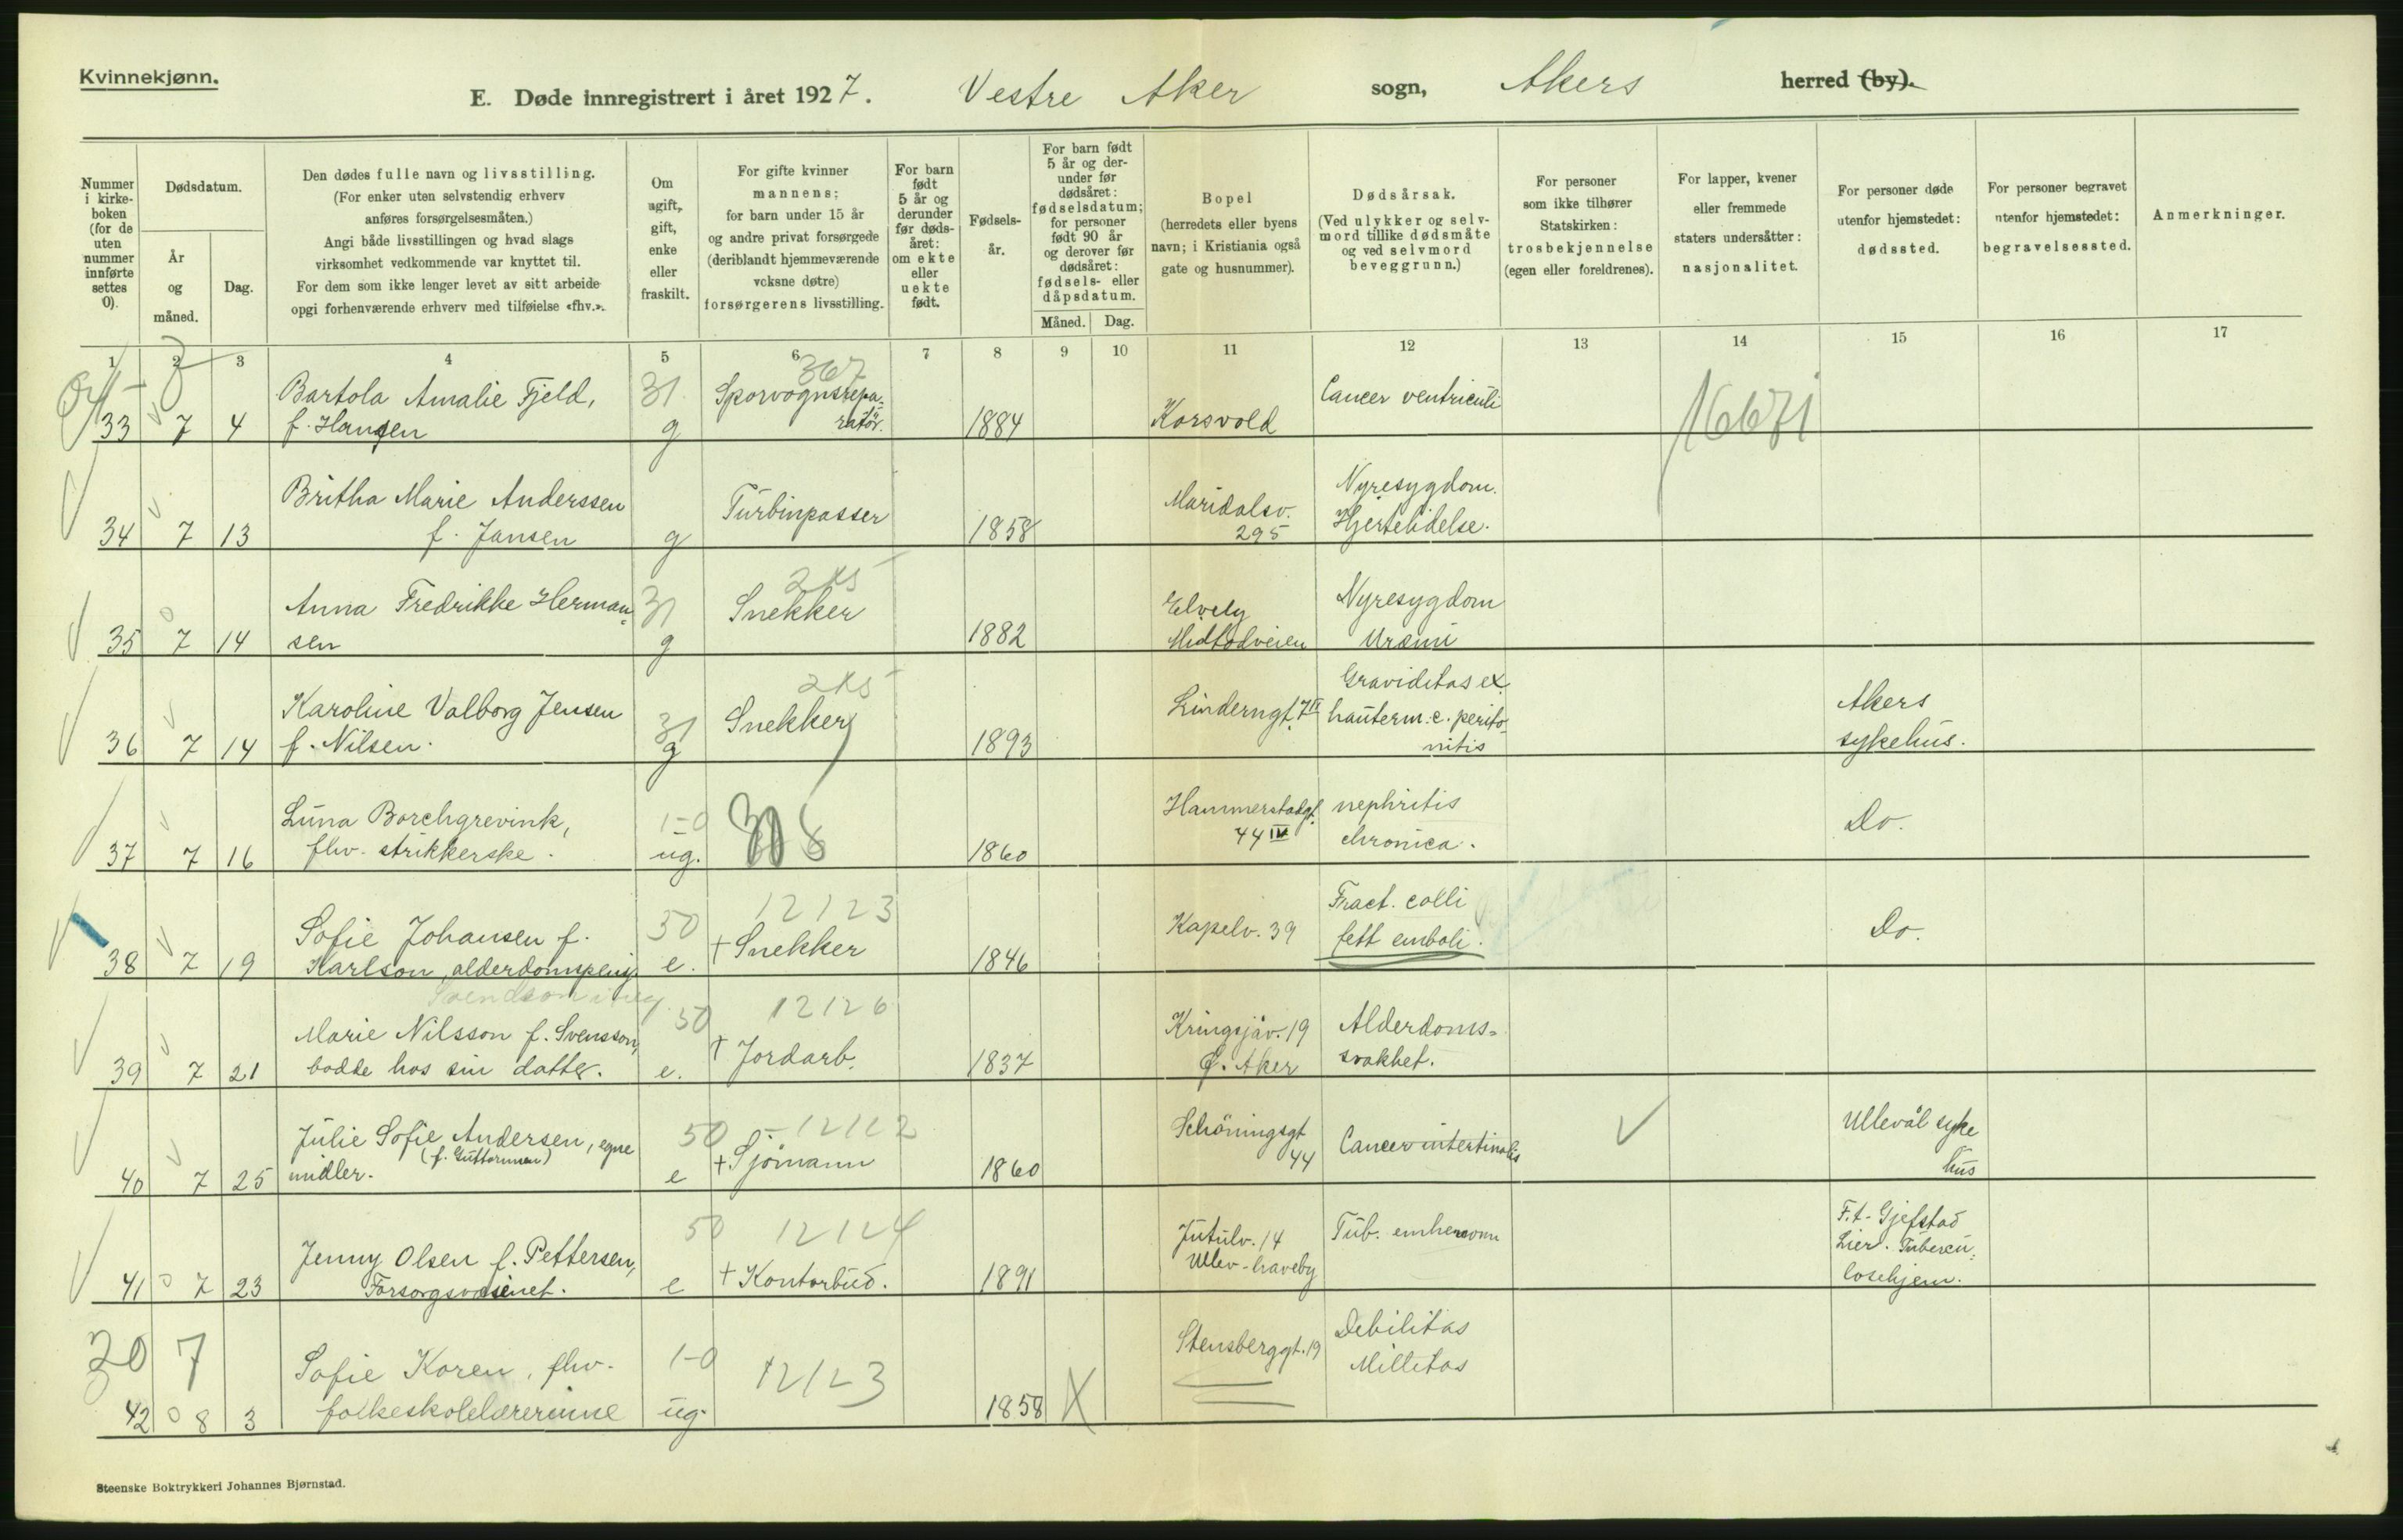 Kvinnekjønn.
E. Døde innregistrert i året 1927. Vestre Aker sogn, Akers herred (by).
Nummer i kirkeboken (for de uten nummer innførte settes 0).
Dødsdatum.
År og måned.
Dag.
Den dødes fulle navn og livsstilling.
(For enker uten selvstendig erhverv
anføres forsørgelsesmåten.)
Angi både livsstillingen og hvad slags
virksomhet vedkommende var knyttet til.
For dem som ikke lenger levet av sitt arbeide
opgi forhenværende erhverv med tilføielse «fhv.».
Om ugift, gift, enke eller fraskilt.
For gifte kvinner
mannens;
for barn under 15 år
og andre privat forsørgede
(deriblandt hjemmeværende
voksne døtre)
forsørgerens livsstilling.
For barn født 5 år og derunder før dødsåret: om ekte eller uekte født.
Fødselsår.
For barn født 5 år og derunder før dødsåret: fødselsdatum; for personer født 90 år og derover før dødsåret: fødsels- eller dåpsdatum.
Måned. Dag.
Bopel
(herredets eller byens
navn; i Kristiania også
gate og husnummer).
Dødsårsak.
(Ved ulykker og selvmord tillike dødsmåte
og ved selvmord
beveggrunn.)
For personer
som ikke tilhører
Statskirken:
trosbekjennelse
(egen eller foreldrenes).
For lapper, kvener
eller fremmede
staters undersåtter:
nasjonalitet.
For personer døde
utenfor hjemstedet:
dødssted.
For personer begravet
utenfor hjemstedet:
begravelsessted.
Anmerkninger.
1 2 3 4 5 6 7 8 9 10 11 12 13 14 15 16 17
367
16671
33 7 4 Bartola Amalie Fjeld, f. Hansen 31 g Sporvognsrepa-ratör. 1884 Korsvold Cancer ventriculi
34 7 13 Britha Marie Anderssen f. Jansen g Turbinpasser 1858 Maridalsv. 295 Nyresygdom. Hjertelidelse.
35 7 14 Anna Fredrikke Herman-sen 31 g Snekker 1882 Elvely Nyresygdom Uræmi
36 7 14 Karoline Valborg Jensen f. Nilsen. 31 g Snekker 1893 Linderngt. 7 II Graviditas ex. hauterm. c. perito-nitis Akers sykehus.
37 7 16 Luna Borchgrevink, fhv. strikkerske. 1-0 ug. 1860 Hammerstadgt. 44 IV nephritis chronica. Do.
38 7 19 Sofie Johansen f. Karlson, alderdomspensj. 50 e. 12123 † Snekker 1846 Kapelv. 39 Fract. colli fett emboli. Do.
39 7 21 Marie Nilsson f. Svensson, bodde hos sin datter. 50 e. 12126 † Jordarb. 1837 Kringsjåv. 19 Ø. Aker Alderdoms-svakhet.
40 7 25 Julie Sofie Andersen, egne midler. (f. Guttormsen) 50 e 12122 † Sjömann 1860 Schöningsgt 44 Cancer intestinalis Ullevål syke hus
41 7 23 Jenny Olsen f. Pettersen, Forsorgsvæsenet. 50 e 12124 † Kontorbud. 1891 Jutulv. 14 Ullev-haveby Tub. F.t. Gjefstad Lier. Tubercu-losehjem.
30 7
42 8 3 Sofie Koren, fhv. folkeskolelærerinne 1-0 ug. 12123 1858 X Stensberggt. 19 Debilitas
Steenske Boktrykkeri Johannes Bjørnstad.